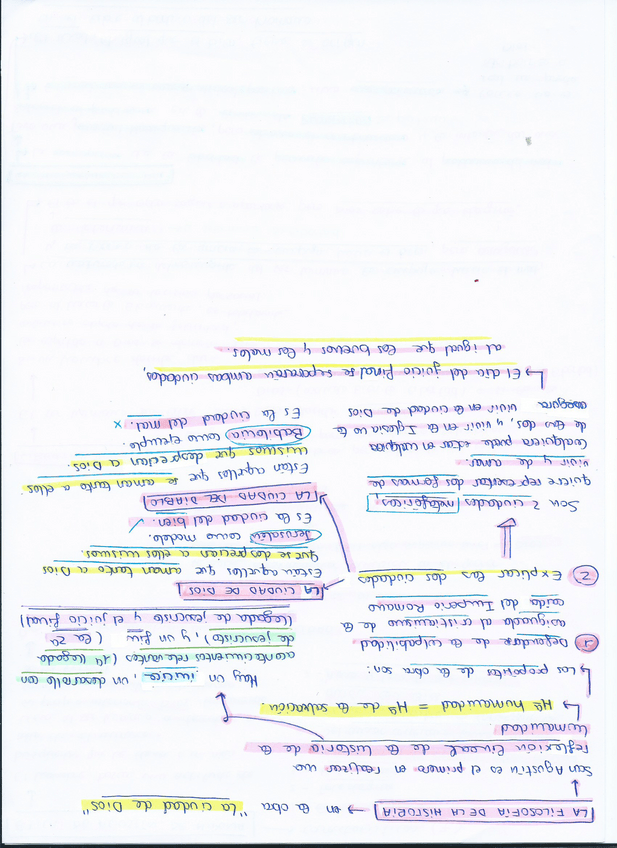 LA FILOSOFÍA DE LA HISTORIA → en la obra "La ciudad de Dios"
San Agustín es el primero en realizar una
reflexión lineal de la historia de la
humanidad.
↳ Hª humanidad = Hª de la salvación.
↳ Los propósitos de la obra son:
1 Defenderse de la culpabilidad
asignada al cristianismo de la
caída del Imperio Romano
2 Explicar las dos ciudades
Hay un inicio, un desarrollo con
acontecimientos relevantes (1ª llegada
de Jesucristo) y un fin (la 2ª
llegada de Jesucristo y el juicio final)
LA CIUDAD DE DIOS
Están aquellos que aman tanto a Dios
que se desprecian a ellos mismos.
Jerusalén como modelo.
Es la ciudad del bien.
LA CIUDAD DEL DIABLO
Están aquellos que se aman tanto a ellos
mismos que desprecian a Dios.
Babilonia como ejemplo.
Es la ciudad del mal. x
Son 2 ciudades metafóricas,
quiere representar dos formas de
vivir y de amar.
Cualquiera puede estar en cualquiera
de las dos, y vivir en la Iglesia no te
asegura vivir en la ciudad de Dios
↳ El día del juicio final se separarán ambas ciudades,
al igual que los buenos y los malos.